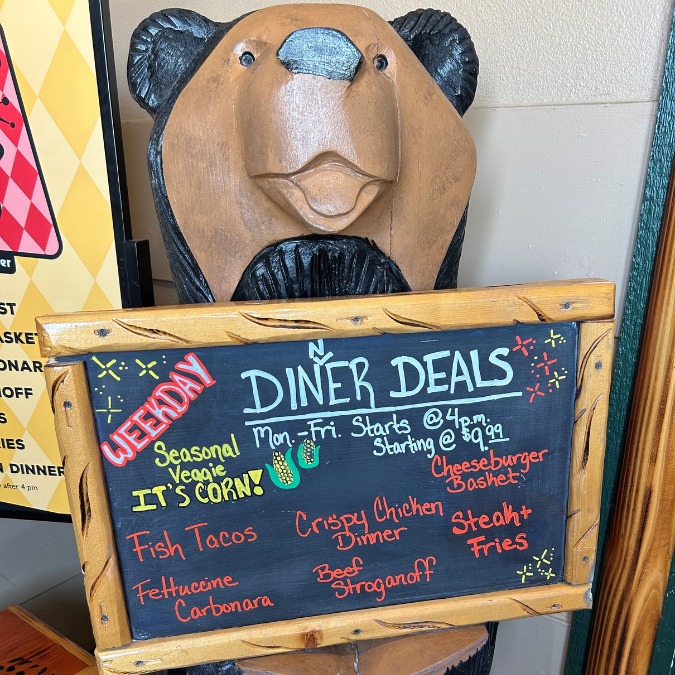 WEEKDAY
DINNER DEALS
Mon.-Fri. Starts @ 4p.m.
Starting @ $9.99
Seasonal
Veggie
IT'S CORN!
Cheeseburger
Basket
Fish Tacos
Crispy Chicken
Dinner
Steak +
Fries
Fettuccine
Carbonara
Beef
Stroganoff
er
ST
ASKET
ONAR
NOFF
S
IES
N DINNER
after 4 pm